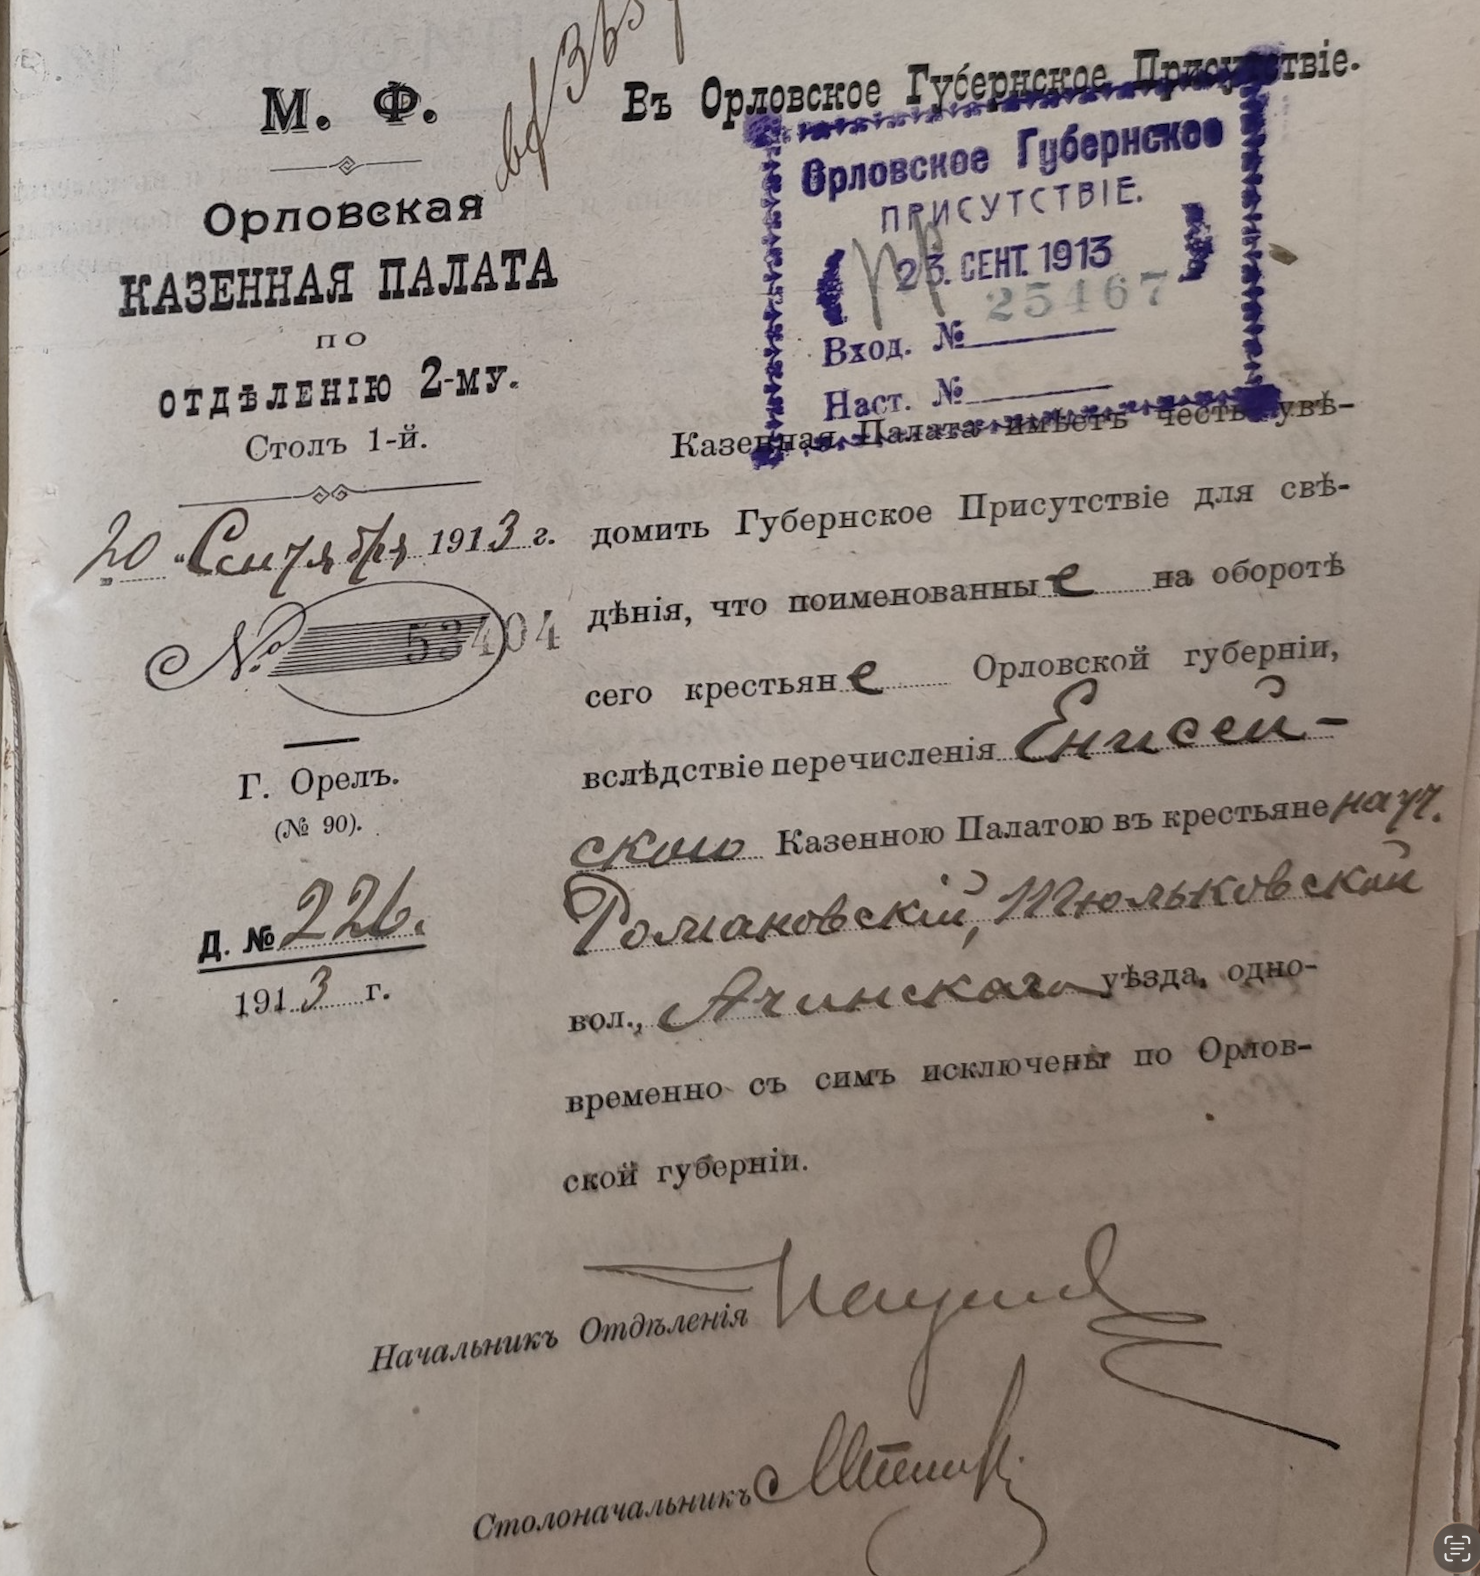 М. Ф.
Орловская
КАЗЕННАЯ ПАЛАТА
ПО
ОТДѢЛЕНІЮ 2-МУ.
Столъ 1-й.
20 „Сентября 1913 г.
№ 53404
Г. Орелъ.
(№ 90).
Д. № 226.
1913 г.
Въ Орловское Губернское Присутствіе.
Орловское Губернское
ПРИСУТСТВІЕ.
23. СЕНТ. 1913
25467
Вход. №
Наст. №
Казенная Палата имѣетъ честь увѣ-
домить Губернское Присутствіе для свѣ-
дѣнія, что поименованные на оборотѣ
сего крестьяне Орловской губерніи,
вслѣдствіе перечисленія Енисей-
скою Казенною Палатою въ крестьяне науч.
Романовскій, Тюльковской
вол., Ачинскаго уѣзда, одно-
временно съ симъ исключены по Орлов-
ской губерніи.
Начальникъ Отдѣленія
Столоначальникъ